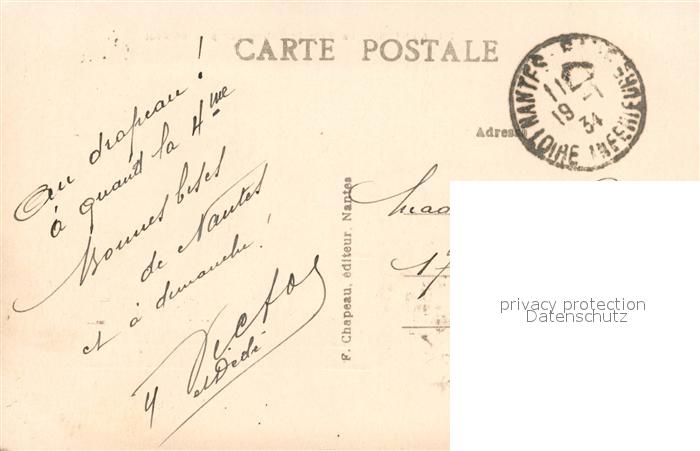 CARTE POSTALE
Au drapeau !
à quand la 4me
Bonnes bises
de Nantes
et à dimanche !
Victor
et Dédé
F. Chapeau, éditeur, Nantes
Adresse
NANTES
LOIRE INFERIEURE
11
19 34
17
privacy protection
Datenschutz